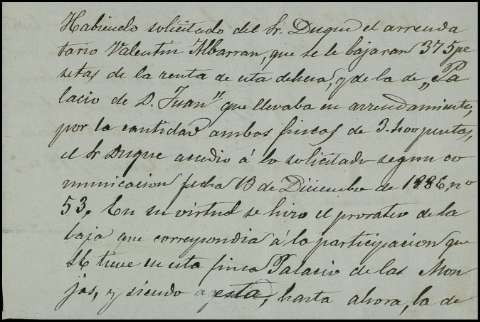 Habiendo solicitado del Sr. Duque el arrenda
tario Valentin Albarran, que se le bajaran 375 pe
setas de la renta de esta dehesa, y de la de „Pa
lacio de D. Juan” que llevaba en arrendamiento,
por la cantidad ambas fincas de pesetas,
el Sr Duque accedio á lo solicitado segun co
municacion fecha 13 de Diciembre de 1886, nº
53. En su virtud se hizo el prorateo de la
baja que correspondia á la participacion que
SE tiene en esta finca Palacio de las Mon
jas, y siendo esta, hasta ahora, la de